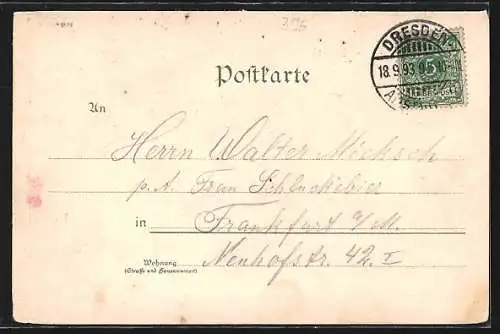 DRESDEN
18.9.93
5
Postkarte
An
Herrn Walter Mieksch
p. A. Frau Schluckebier
in Frankfurt a/M.
Neuhofstr. 42. I
Wohnung
(Straße und Hausnummer)